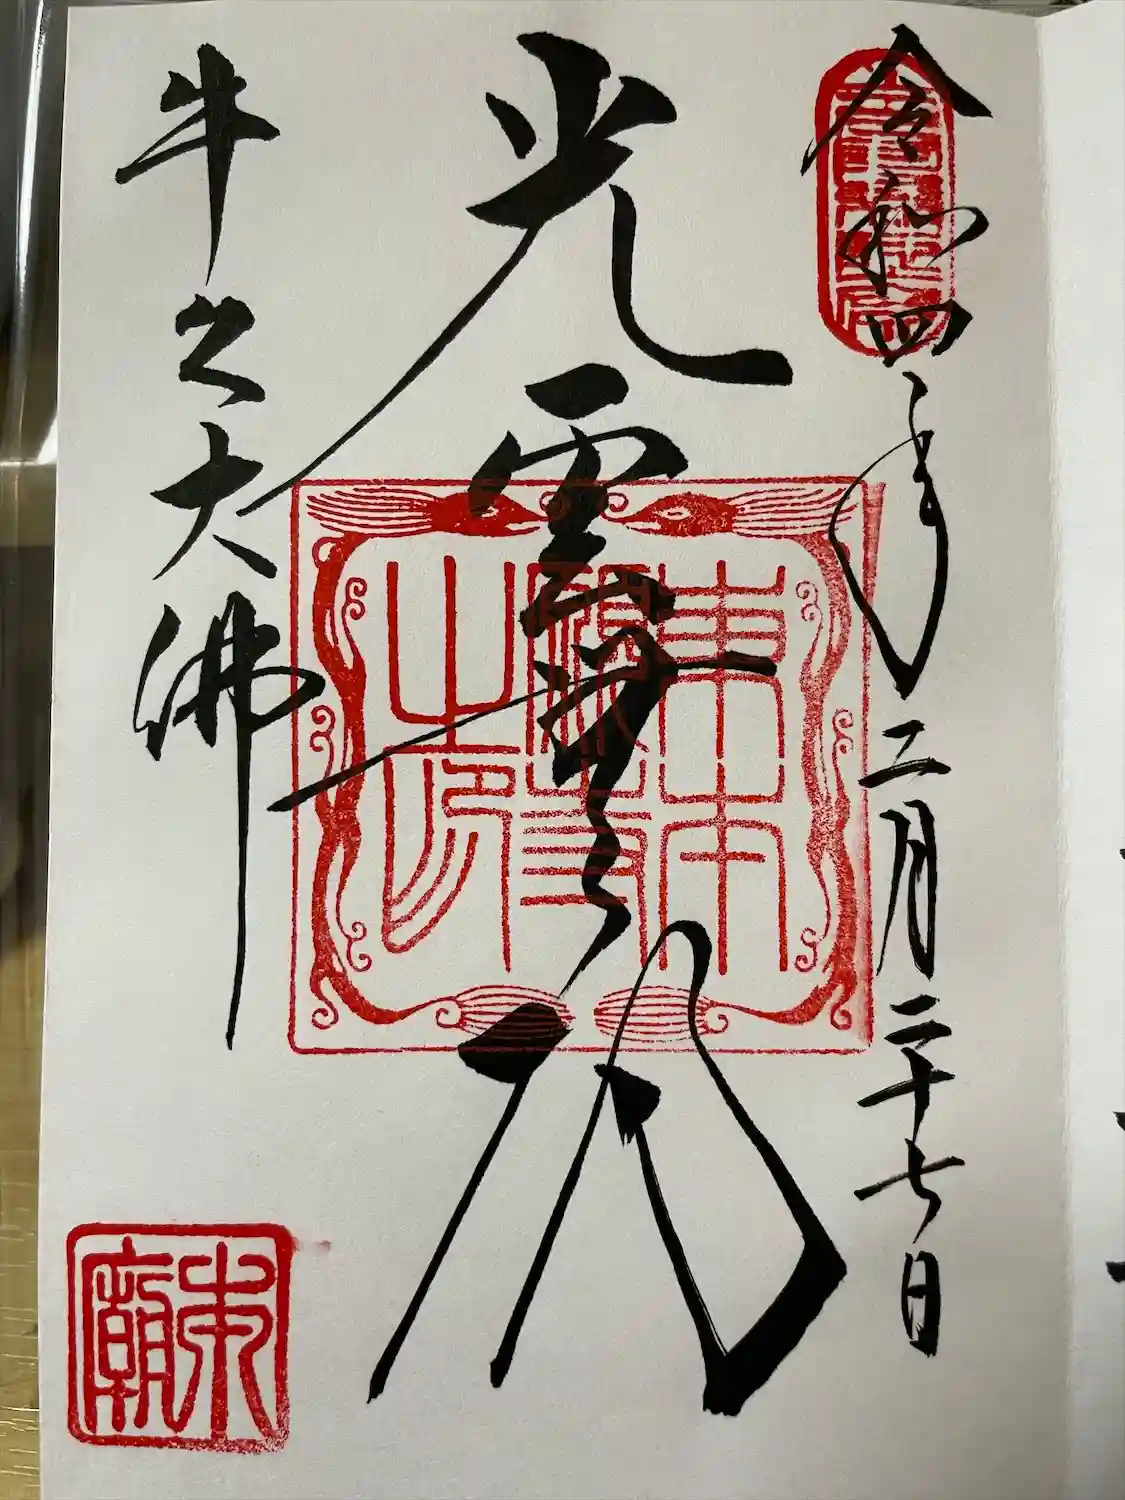 令和四年二月二十七日
光雲無碍
東本
願寺
之印
牛久大佛
東廟